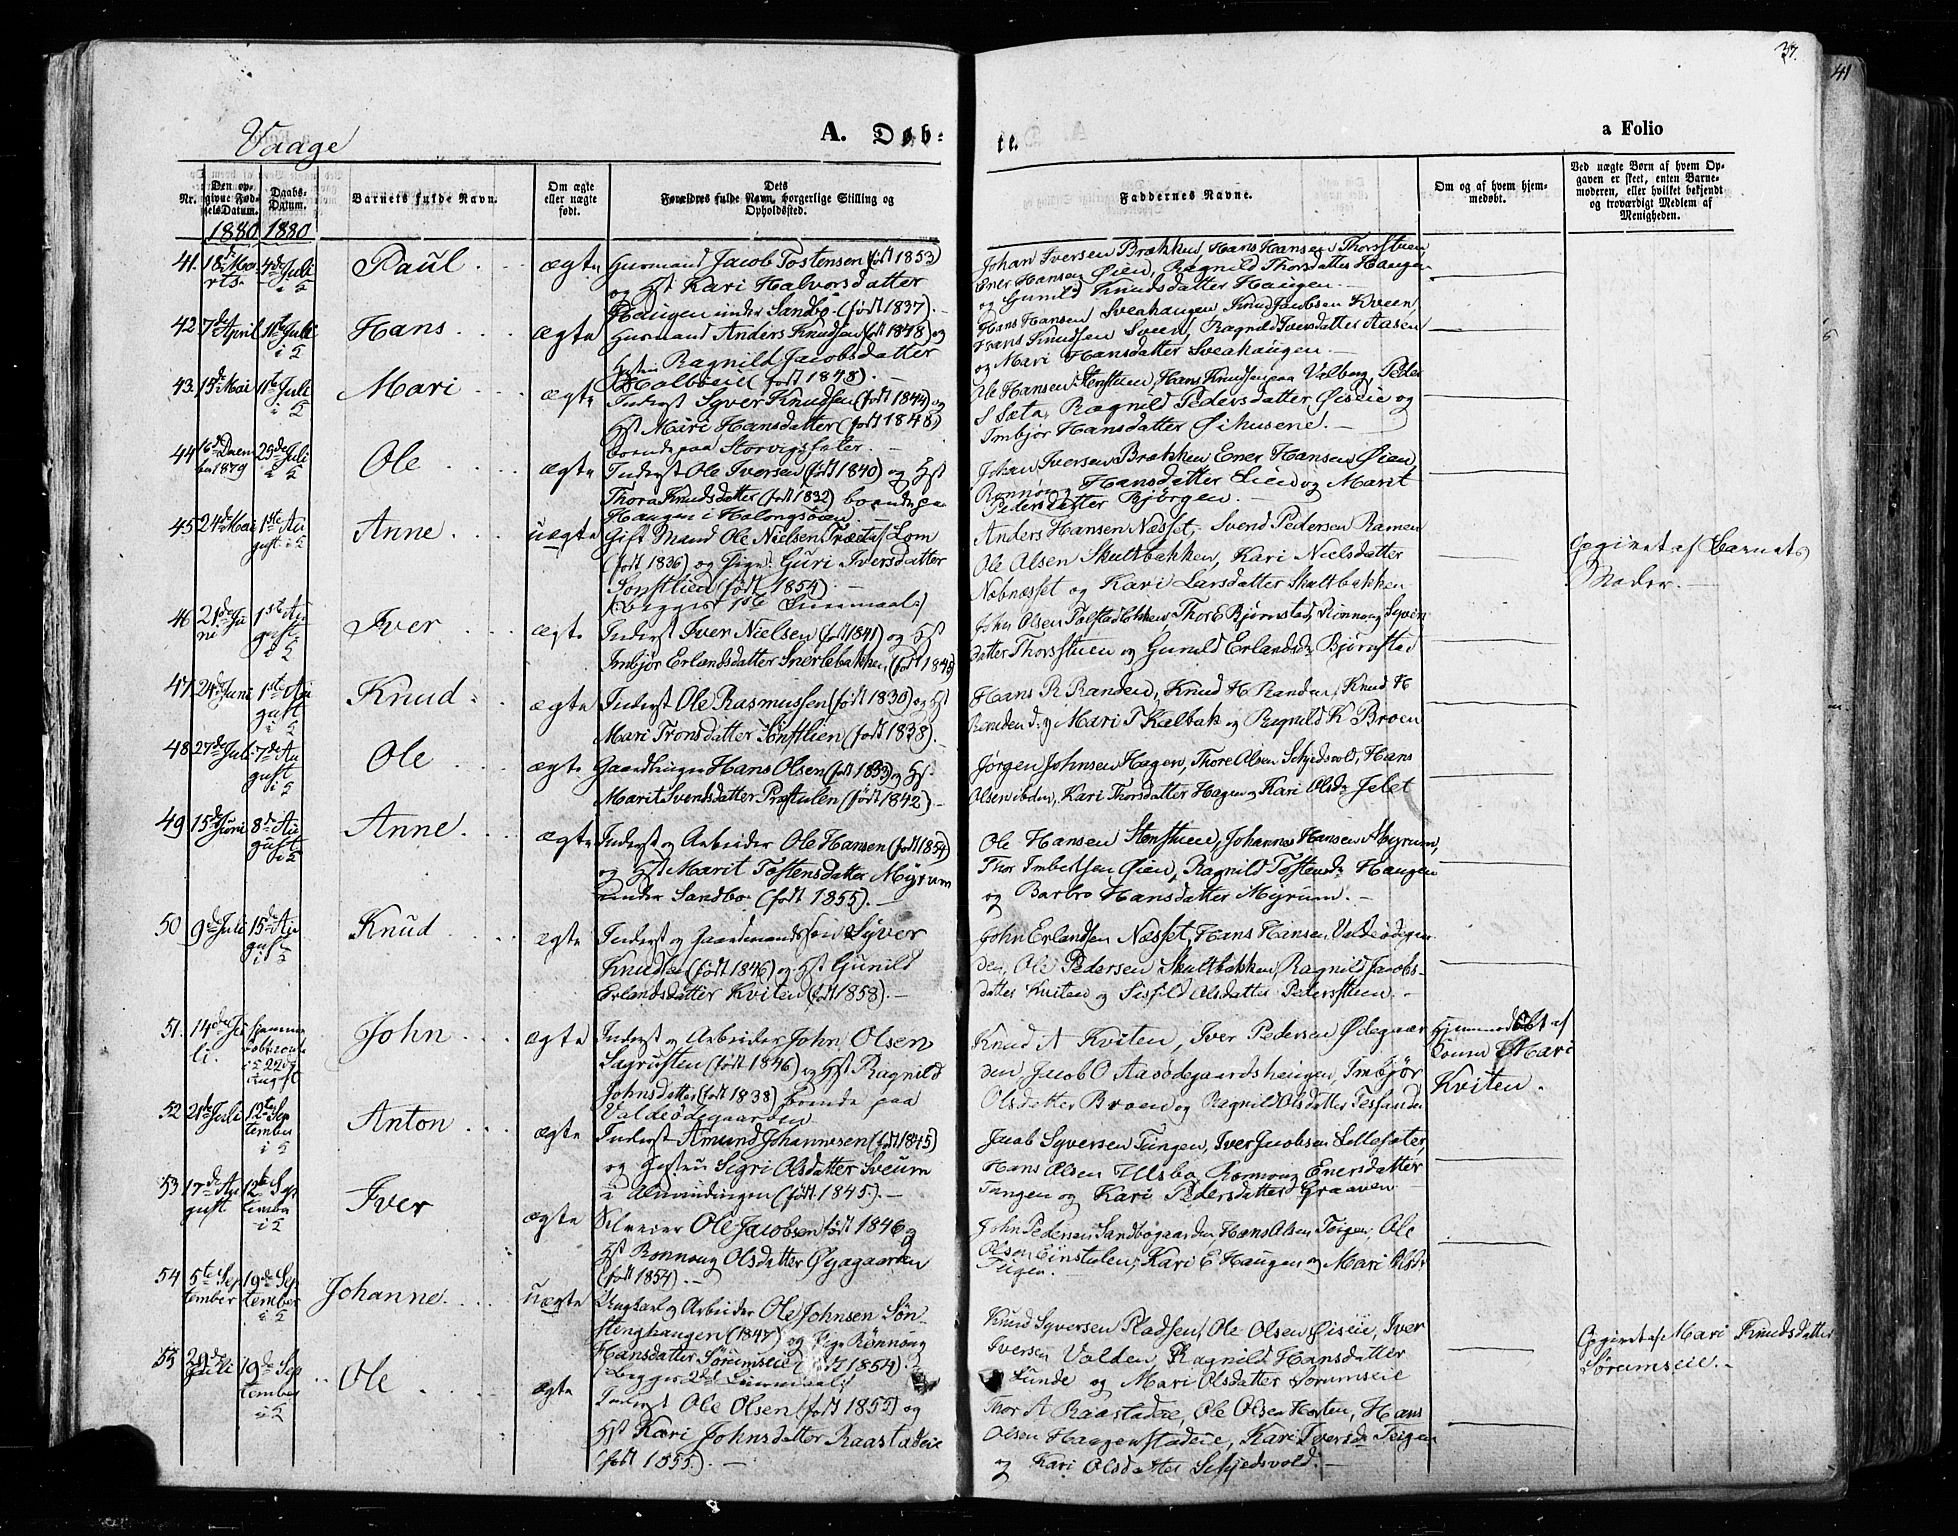 37.
41
Vaage
A. Døb-
te.
a Folio
Nr.
Den op-
givne Fød-
sels Datum.
Daabs-
Datum.
Barnets fulde Navn.
Om ægte
eller uægte
født.
Dets
Forældres fulde Navn, borgerlige Stilling og
Opholdssted.
Faddernes Navne.
Om og af hvem hjem-
medøbt.
Ved uægte Børn af hvem Op-
gaven er skeet, enten Barne-
moderen, eller hvilket bekjendt
og troværdigt Medlem af
Menigheden.
1880 1880
41. 18de Mar 4de Juli Paul ægte Husmand Jacob Tostensen (født 1853)
rts i S og Hst Kari Halvorsdatter
Haugen under Sandbo (født 1837).
Johan Iversen Brækken, Hans Hansen Thorsstuen
Ener Hansen Øien, Ragnild Thorsdatter Haugen
og Gunild Knudsdatter Haugen.
42 7de April 11te Juli Hans ægte Husmand Anders Knudsen (født 1848) og
i S Hustru Ragnild Jacobsdatter
Holbræie (født 1848).
Hans Hansen Sveahaugen, Knud Jacobsen Kveen,
Hans Knudsen Sveen, Ragnild Iversdatter Aasen
og Mari Hansdatter Sveahaugen
43. 15de Mai 11te Juli Mari ægte Inderst Syver Knudsen (født 1842) og
i S Hst Mari Hansdatter (født 1848)
boende paa Storvigsæter.
Ole Hansen Stenstuen, Hans Knudsen paa Valberg, Peder
S Sæta, Ragnild Pedersdatter Øiseie og
Imbjør Hansdatter Øihusene.
44 16de Decem 25de Juli Ole ægte Inderst Ole Iversen (født 1840) og Hst
ber 1879 i S Thora Knudsdatter (født 1832) boende paa
Haugen i Holongsøien.
Johan Iversen Brækken Ener Hansen Øien,
Rønnøug Hansdatter Lien og Marit
Pedersdatter Bjørgen.
45 24de Mai 1ste Au Anne uægte Gift Mand Ole Nielsen Træet/Lom
gust i S (født 1836) og Pige Guri Iversdatter
Sønstlien (født 1854)
(:begges 1ste Leiermaal:)
Anders Hansen Næsset, Svend Pedersen Ramen
Ole Olsen Skultbakken, Kari Nielsdatter
Nobnæsset og Kari Larsdatter Skultbakken
Opgivet af Barnets
Moder.
46 21de Ju 1ste Au Iver ægte Inderst Iver Nielsen (født 1841) og Hst
ni gust i S Imbjør Erlandsdatter Snerlebakken (født 1845)
John Olsen Polstadbakken, Thor E Bjørnstad, Rønnøug Syver
datter Thorsstuen og Gunild Erlandsdr Bjørnstad
47 24de Juni 1ste Au Knud ægte Inderst Ole Rasmussen (født 1830) og Hst
gust i S Mari Tronsdatter Sønstlien (født 1838).
Hans R Randen, Knud H Randen, Knud H
Randen d: y Mari T Kalbak og Ragnild K Broen
48 27de Juli 7de Au Ole ægte Gaardbruger Hans Olsen (født 1853) og Hst
gust i S Marit Svendsdatter Præstulen (født 1842)
Jørgen Johnsen Hagen, Thore Olsen Skjedsvold, Hans
Olsen ibden, Kari Thorsdatter Hagen og Kari Olsdr Jelet
49 15de Juni 8de Au Anne ægte Inderst og Arbeider Ole Hansen (født 1854)
gust i S og Hst Marit Tostensdatter Myrum
under Sandbo (født 1855).
Ole Hansen Stenstuen, Johannes Hansen Myrum,
Thor Imbertsen Øien, Ragnild Tostensdr Haugen
og Barbro Hansdatter Myrum.
50 9de Juli 15de Au Knud ægte Inderst og Gaardmandssøn Syver
gust i S Knudsen (født 1846) og Hst Gunild
Erlandsdatter Kviten (født 1858).
John Erlandsen Næsset, Hans Hansen Valdeødegaar
den, Ole Pedersen Skultbakken, Ragnild Jacobs-
datter Kviten og Sisild Olsdatter Pedersstuen.
51. 14de Ju Hjemme John ægte Inderst og Arbeider John Olsen
li. døbt i S 22de August Sagrusten (født 1846) og Hst Ragnild
Johnsdatter (født 1838) boende paa
Valdeødegaarden
Knud A Kviten, Iver Pedersen Ødegaar
den, Jacob O Aasødegaardshaugen, Imbjør
Olsdatter Broen og Ragnild Olsdatter
Hjemmedøbt af
Mari
Kviten.
52 21de Juli 12te Sep Anton ægte Inderst Amund Johannesen (født 1845)
tember i S og Hustru Sigri Olsdatter Sveum
i Almindingen (født 1845).
Jacob Syversen Tungen, Iver Jacobsen Lillesæter,
Hans Olsen Ulsbo, Rønnoug Enersdatter
Tungen og Kari Pedersdatter Graaven
53 17de Au 12te Sep Iver ægte Selveier Ole Jacobsen født 1846 og
gust tember i S Hst Rønnoug Olsdatter Øygaarden
(født 1854).
John Pedersen Sandbøgaarden, Hans Olsen Teigen, Ole
Olsen Einstulen, Kari E Haugen og Mari Olsdr
Teigen.
54 5te Sep 19de Sep Johanne uægte Ungkarl og Arbeider Ole Johnsen Søn-
tember tember i S stenghaugen (1847) og Pige Rønnoug
Hansdatter Sørumseie (født 1854).
(Begges 2det Leiermaal)
Knud Syversen Pladsen, Ole Olsen Øiseie, Iver
Iversen Valden, Ragnild Hansdatter
Sunde og Mari Olsdatter Sørumseie
Opgivet af Mari Knudsdatter
Sørumseie.
55 29de Juli 19de Sep Ole ægte Inderst Ole Olsen (født 1855) og
tember i S Hst Kari Johnsdatter Raastadeie
(født 1855).
Thor A Raastadeie, Ole Olsen Horten, Hans
Olsen Haugenstadeie, Kari Iversdr Teigen
og Kari Olsdatter Skjedsvold.